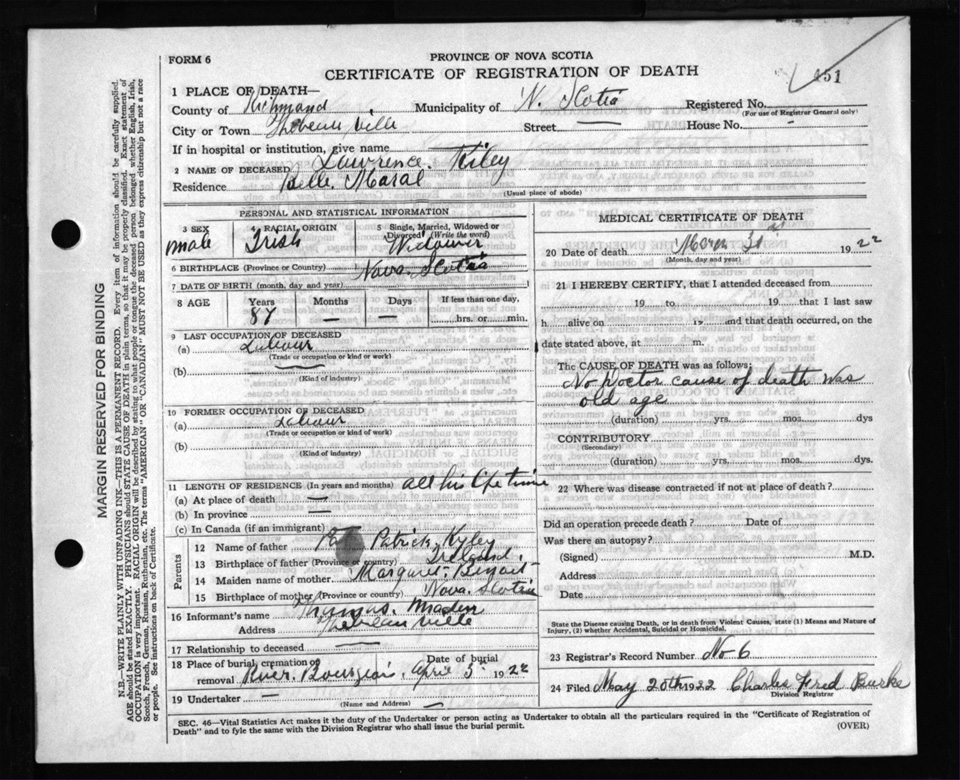 451
FORM 6
PROVINCE OF NOVA SCOTIA
CERTIFICATE OF REGISTRATION OF DEATH
1 PLACE OF DEATH—
County of Richmond Municipality of N. Scotia Registered No.
(For use of Registrar General only)
City or Town Thibeauville Street — House No. -
If in hospital or institution, give name
2 NAME OF DECEASED Lawrence Kiley
Residence Belle Maral
(Usual place of abode)
PERSONAL AND STATISTICAL INFORMATION
3 SEX 4 RACIAL ORIGIN 5 Single, Married, Widowed or Divorced (Write the word)
male Irish Widower
6 BIRTHPLACE (Province or Country) Nova Scotia
7 DATE OF BIRTH (month, day and year)
8 AGE Years Months Days If less than one day,
87 — — hrs. or min.
9 LAST OCCUPATION OF DECEASED
(a) Labour
(Trade or occupation or kind of work)
(b)
(Kind of industry)
10 FORMER OCCUPATION OF DECEASED
(a) Labour
(Trade or occupation or kind of work)
(b)
(Kind of industry)
11 LENGTH OF RESIDENCE (In years and months) all his life time
(a) At place of death —
(b) In province —
(c) In Canada (if an immigrant)
Parents
12 Name of father Patrick Kyley
13 Birthplace of father (Province or country) Ireland.
14 Maiden name of mother Margaret Benoit
15 Birthplace of mother (Province or country) Nova Scotia
16 Informant's name Thomas. Maden
Address Thibeauville
17 Relationship to deceased —
18 Place of burial, cremation or removal River Bourgeois Date of burial April 3 1922
19 Undertaker —
(Name and Address)
MEDICAL CERTIFICATE OF DEATH
20 Date of death March 31st 1922
(Month, day and year)
21 I HEREBY CERTIFY, that I attended deceased from
19 to 19 that I last saw
h alive on 19 and that death occurred, on the
date stated above, at m.
The CAUSE OF DEATH was as follows:
No Doctor cause of death was
old age
(duration) yrs. mos. dys
CONTRIBUTORY
(Secondary)
(duration) yrs. mos. dys.
22 Where was disease contracted if not at place of death?
Did an operation precede death? Date of
Was there an autopsy?
(Signed) M.D.
Address
Date
State the Disease causing Death, or in death from Violent Causes, state (1) Means and Nature of
Injury, (2) whether Accidental, Suicidal or Homicidal.
23 Registrar's Record Number No 6
24 Filed May 20th 1922 Charles Fred Burke
Division Registrar
SEC. 46—Vital Statistics Act makes it the duty of the Undertaker or person acting as Undertaker to obtain all the particulars required in the "Certificate of Registration of
Death" and to fyle the same with the Division Registrar who shall issue the burial permit.
(OVER)
MARGIN RESERVED FOR BINDING
N.B.—WRITE PLAINLY WITH UNFADING INK—THIS IS A PERMANENT RECORD. Every item of information should be carefully supplied.
AGE should be stated EXACTLY. PHYSICIANS should STATE CAUSE OF DEATH in plain terms, so that it may be properly classified. Exact statement of
OCCUPATION is very important. RACIAL ORIGIN will be described by stating to what people or tongue the deceased person belonged whether English, Irish,
Scotch, French, German, Russian, Ruthenian, etc. The terms "AMERICAN" OR "CANADIAN" MUST NOT BE USED as they express citizenship but not a race
or people. See instructions on back of Certificate.